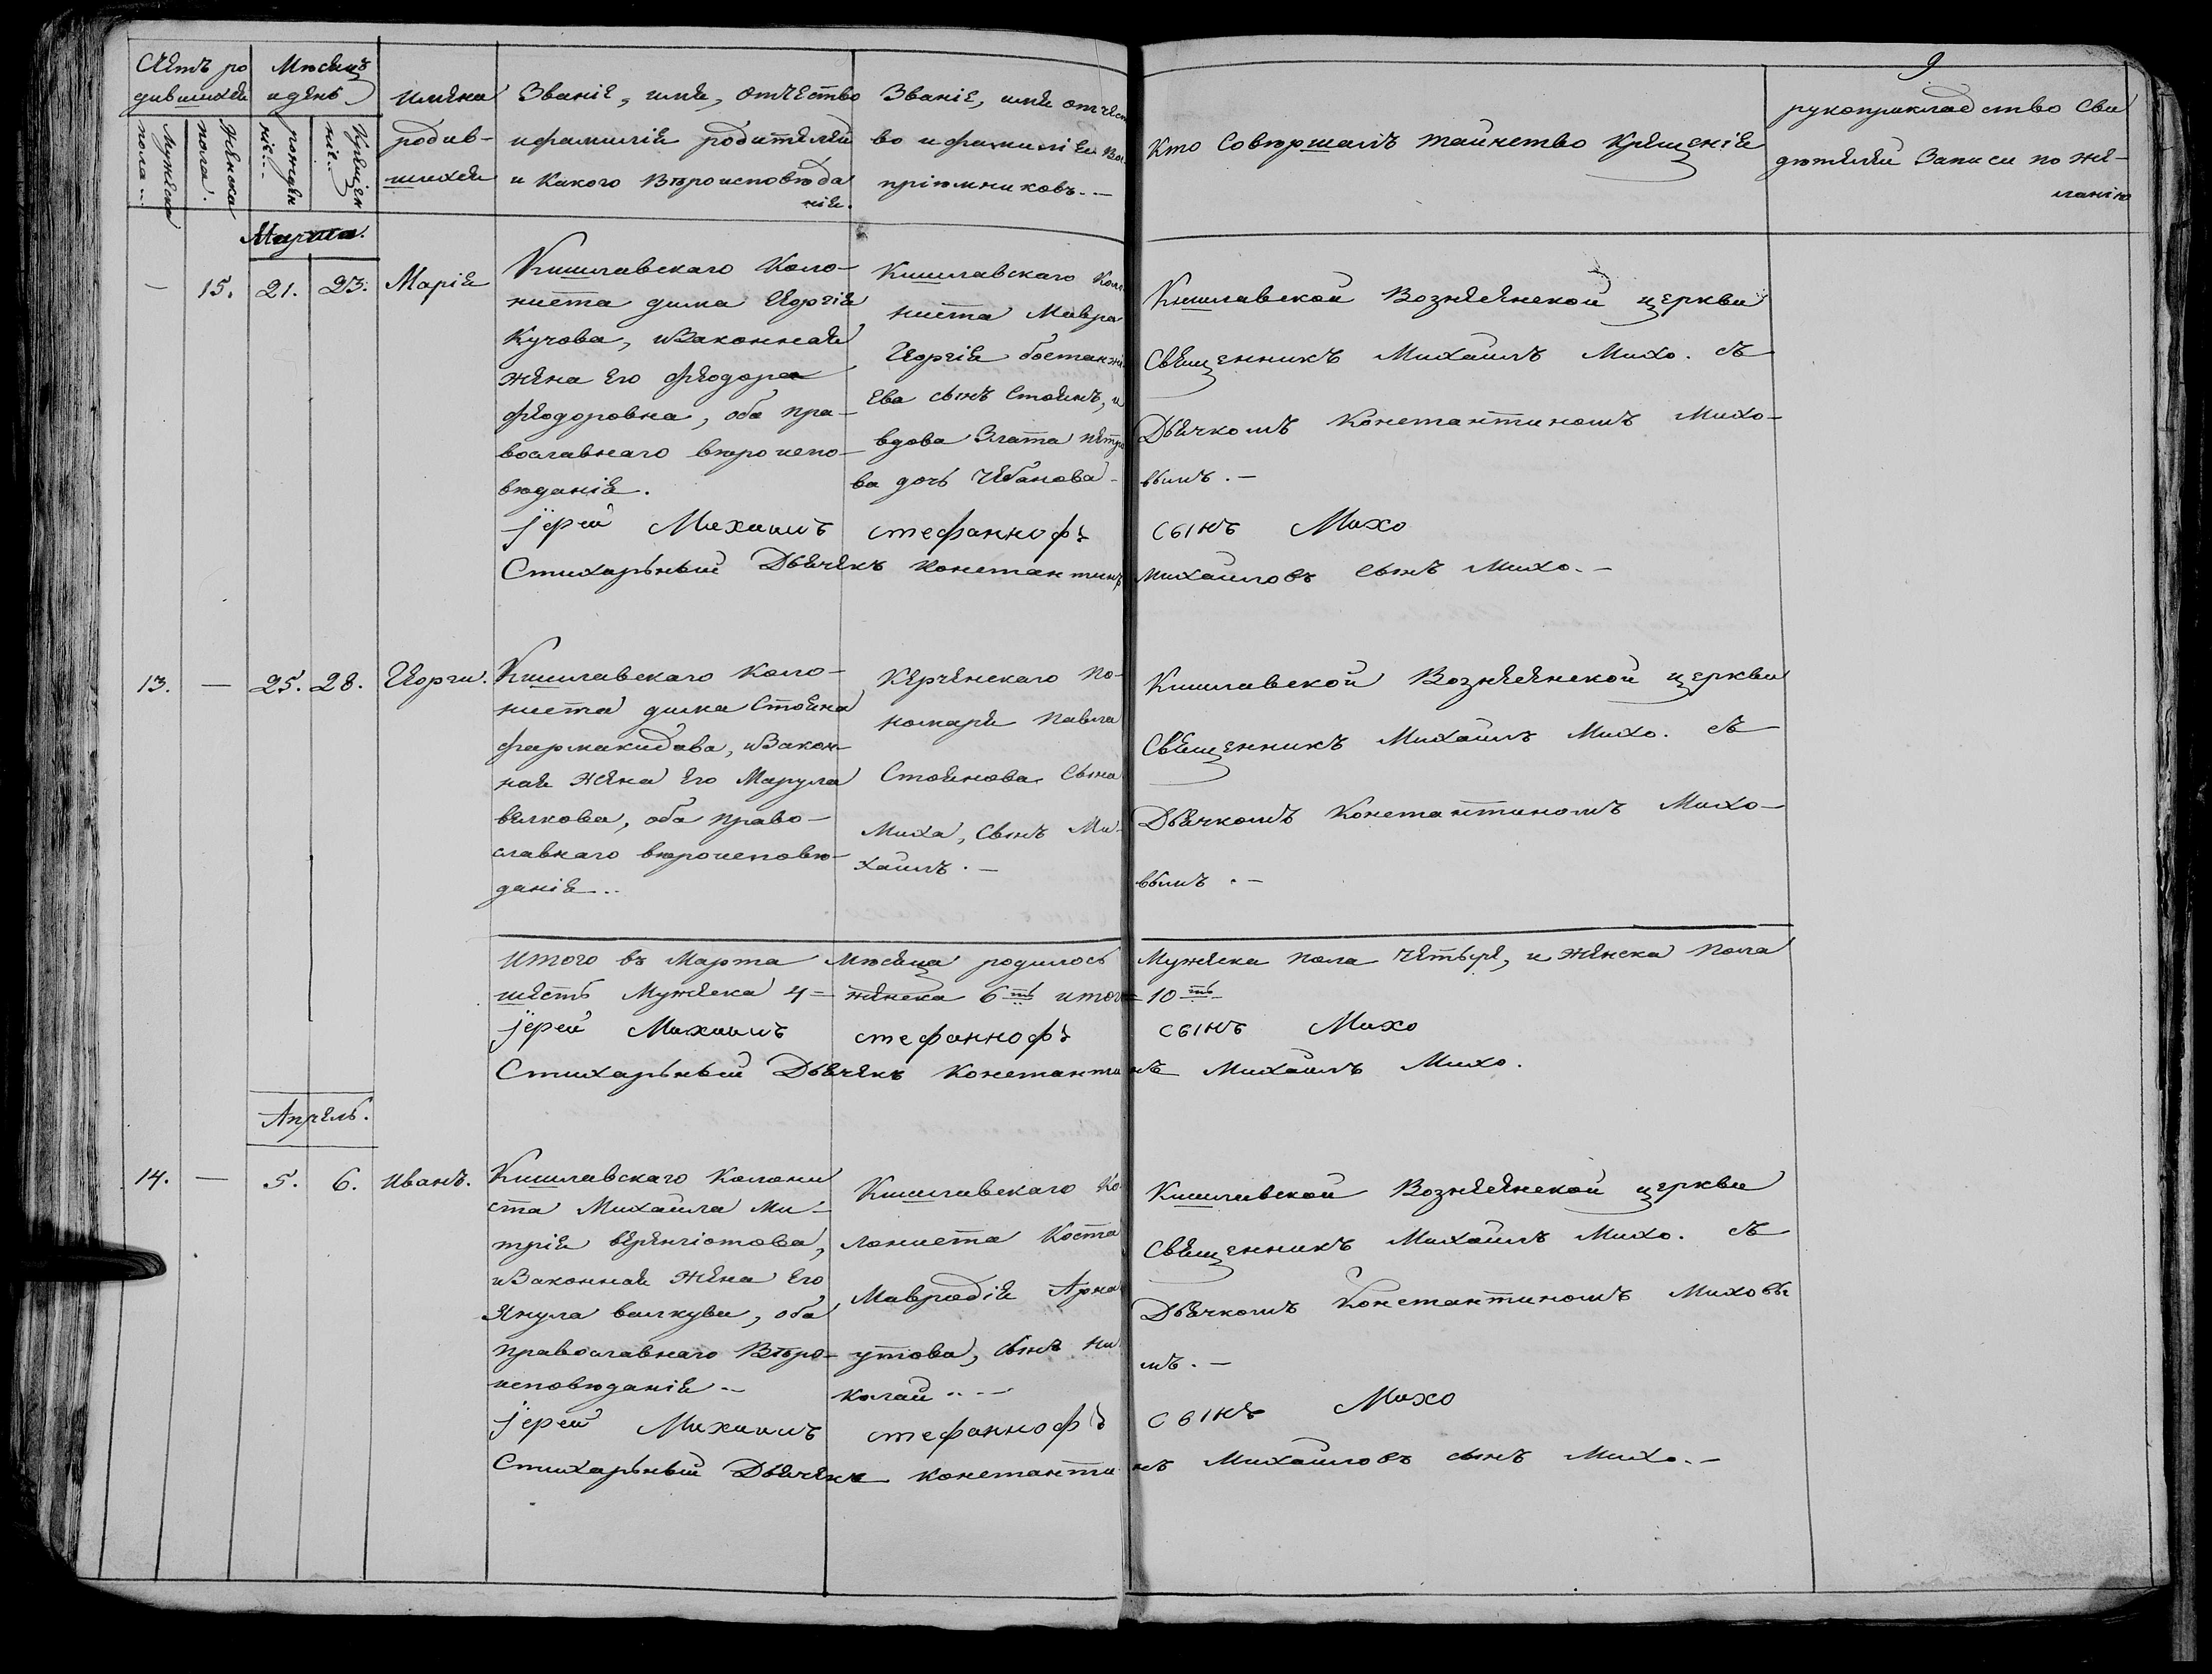 9
Счетъ ро
дившихся
Мѣсяцъ
и день
Имена
родив-
шихся
Званіе, имя, отчество
и фамилія родителей
и какого вѣроисповѣда
нія.
Званіе, имя отчест
во и фамилія вос
пріемниковъ. —
Кто совершалъ таинство крещенія
рукоприкладство сви
дѣтелей записи по же-
ланію
Мужеска
пола
Женска
пола.
рожден
ніе
Крещен
ніе
Марта.
— 15. 21. 23. Марія
Кишлавскаго коло-
ниста дима Георгія
Кучова, и законная
жена его Феодора
Феодоровна, оба пра-
вославнаго вѣроиспо-
вѣданія.
Кишлавскаго коло
ниста Мавра
Георгія бостанжи
ева сынъ Стоянъ, и
вдова Злата петро
ва дочь Чебанова
Кишлавской Вознесенской церкви
Священникъ Михаилъ Михо. съ
Дьячкомъ Константиномъ Михо-
вымъ. —
іерей Михаилъ стефанноф сынъ Михо
Стихарьный Дьячекъ Константинъ Михаиловъ сынъ Михо. —
13. — 25. 28. Георги.
Кишлавскаго коло-
ниста дима Стояна
Фармакидова, и закон-
ная жена его Марула
велкова, оба право-
славнаго вѣроисповѣ-
данія..
Керченскаго по-
номаря павла
Стоянова сына
Миха, сынъ Ми-
хаилъ. —
Кишлавской Вознесенской церкви
Священникъ Михаилъ Михо. съ
Дьячкомъ Константиномъ Михо-
вымъ. —
Итого въ Марта Мѣсяца родилось Мужеска пола четыре, и женска пола
шесть Мужеска 4 = женска 6ть итого = 10ть
іерей Михаилъ стефанноф сынъ Михо
Стихарьный Дьячекъ Константинъ Михаилъ Михо.
Апрель.
14. — 5. 6. Иванъ.
Кишлавскаго Колони
ста Михаила Ми-
трія беренгіотова,
и законная жена его
Янула валкува, оба
православнаго Вѣро-
исповѣданія —
Кишлавскаго Ко
лониста Коста
Маврадія Арна
утова, сынъ Ни
колай . . —
Кишлавской Вознесенской церкви
Священникъ Михаилъ Михо. съ
Дьячкомъ Константиномъ Миховы
мъ. —
іерей Михаилъ стефанноф сынъ Михо
Стихарьный Дьячекъ Константинъ Михаиловъ сынъ Михо. —